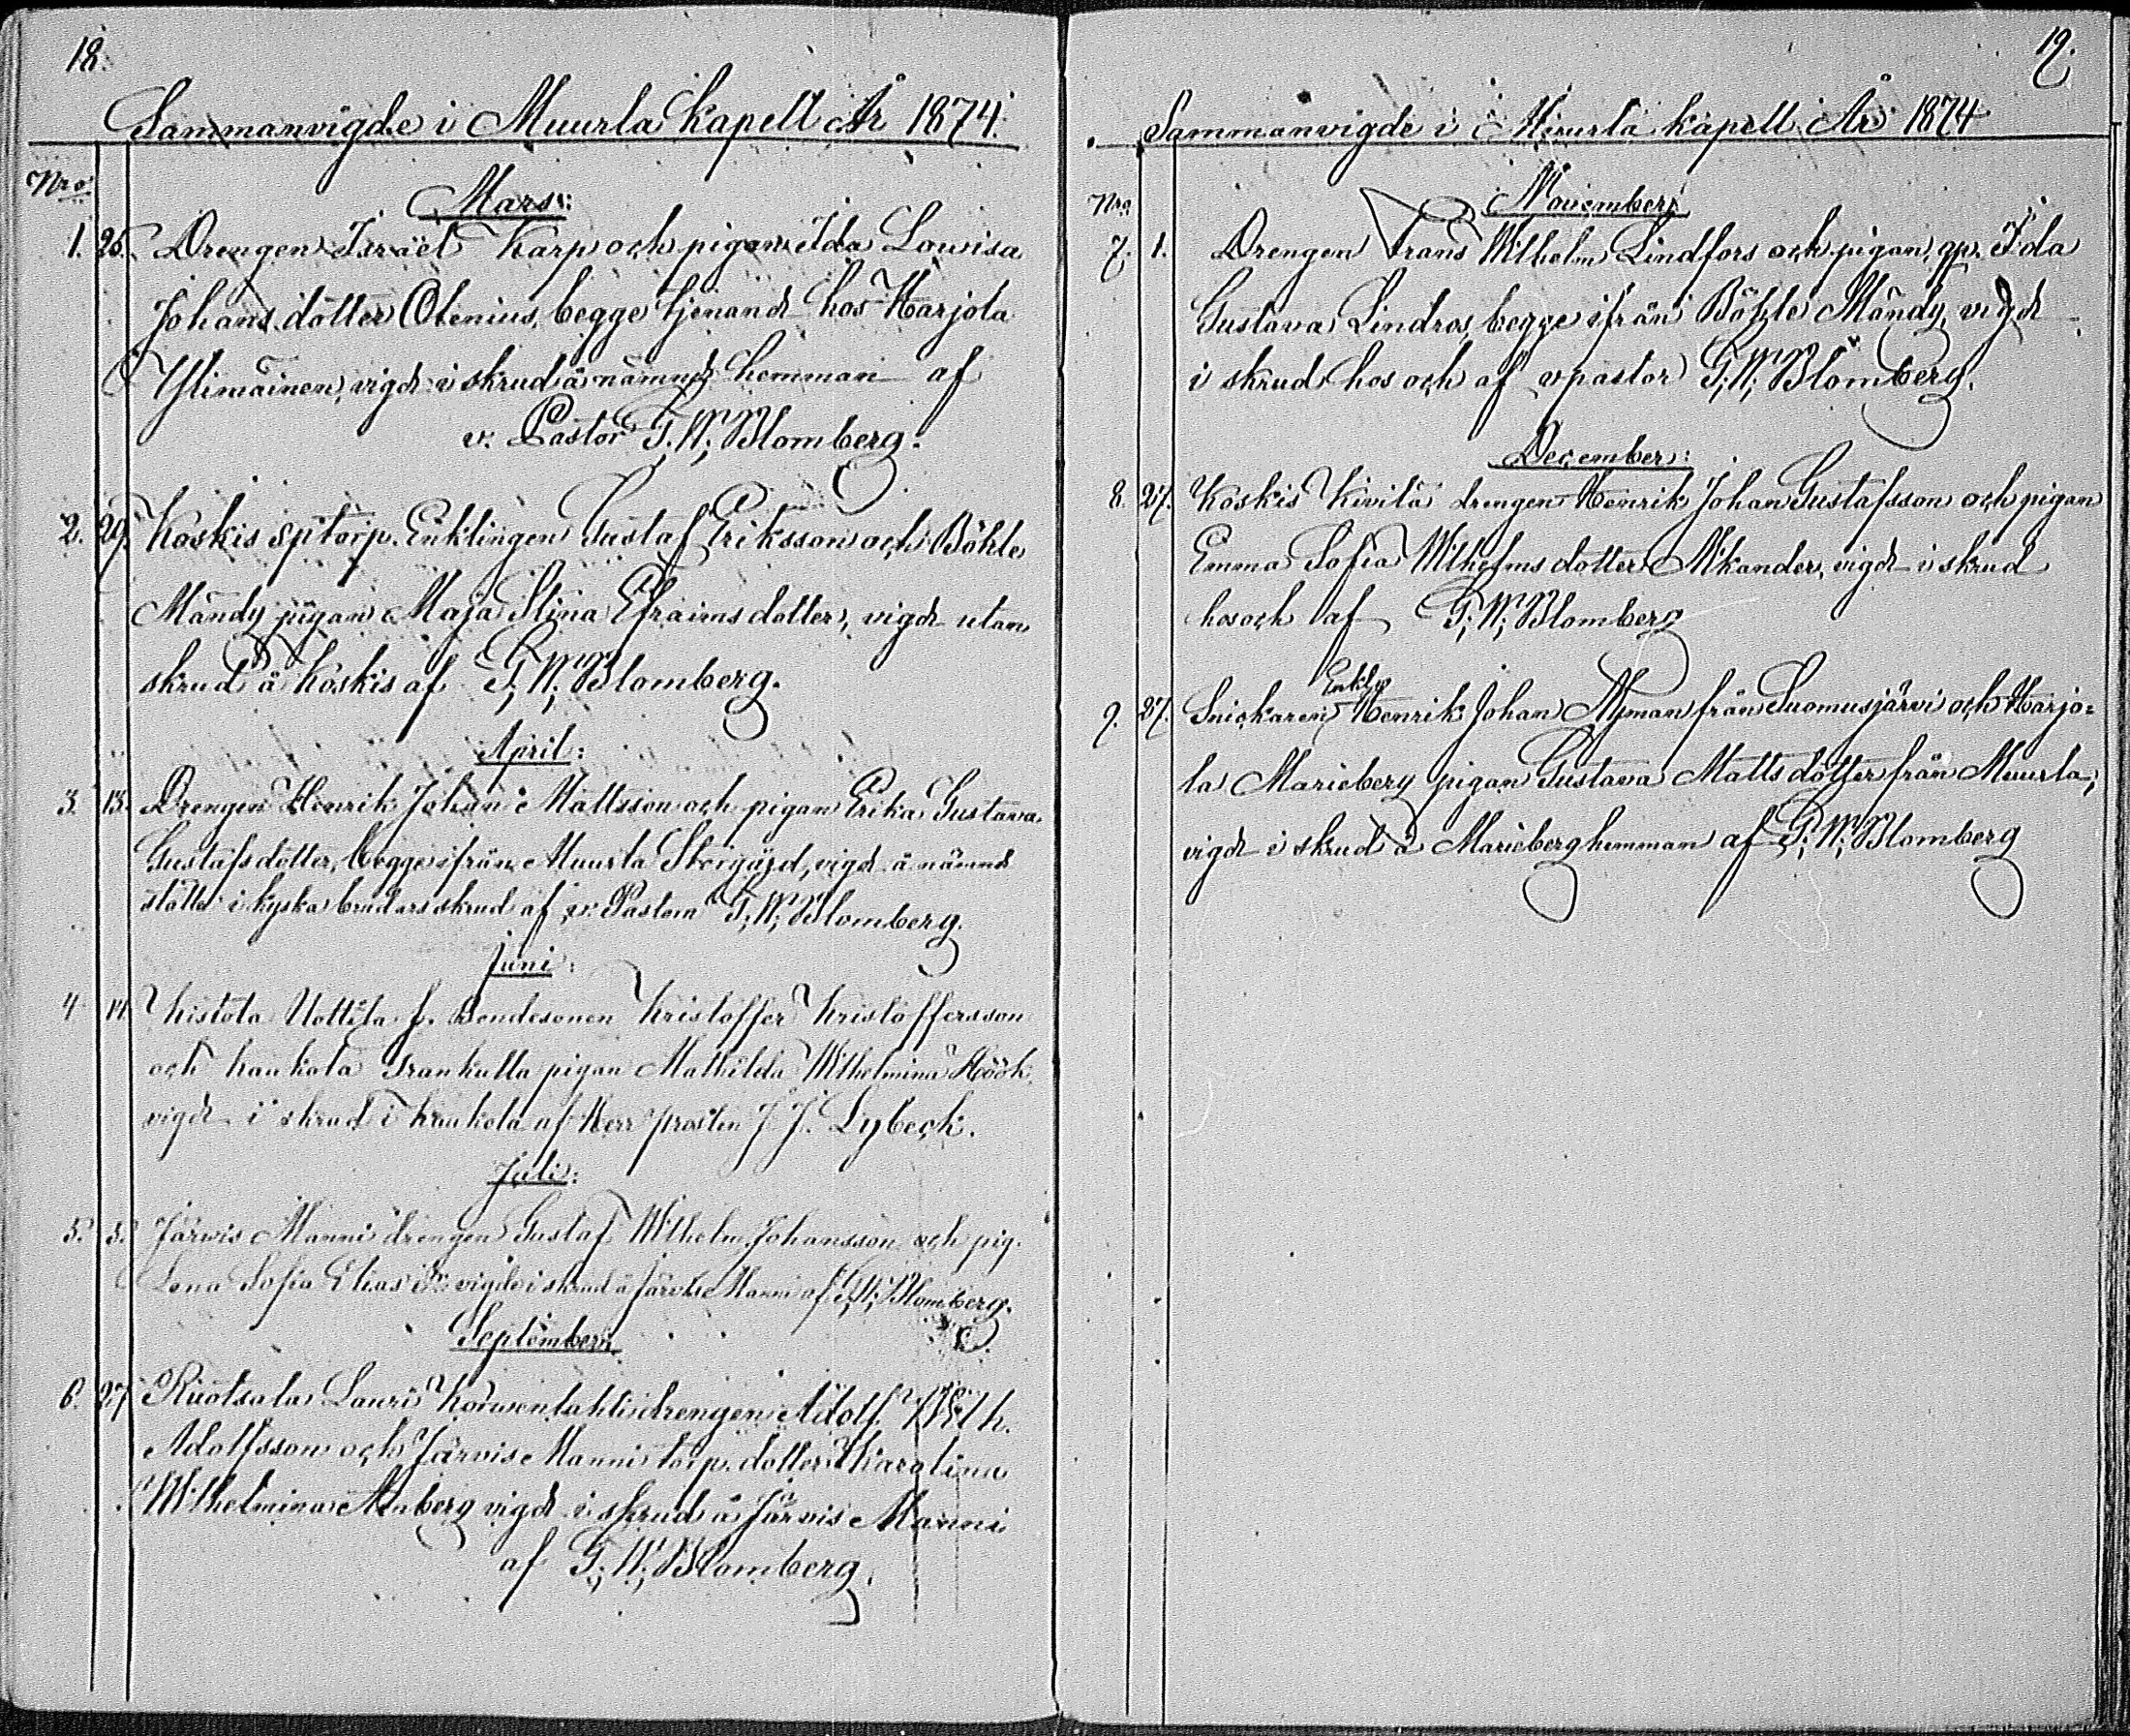 18.
Sammanvigde i Muurla Kapell År 1874.
Nro
Mars:
1. 26. Drengen Israël Karp och pigan Ida Lowisa
Johans dotter Olenius, begge tjenand hos Harjola
Ylimäinen, vigd i skrud å nämnd hemman af
v. Pastor G. W; Blomberg.
2. 29. Koskis sptorp. Enklingen Gustaf Eriksson och Böhle
Mändy pigan Maja Stina Efraims dotter, vigd utan
skrud å Koskis af G; W; Blomberg.
April:
3. 13. Drengen Henrik Johan Mattsson och pigan Erika Gustava
Gustafsdotter, begge ifrån Muurla, vigd å nämnd
ställe i kyska brudars skrud af v. Pastorn G; W; Blomberg.
Juni:
4 14. Kistola Uottila f. Bondesonen Kristoffer Kristoffersson
och Kaukola Frankulla pigan Mathilda Wilhelmina Höök,
vigd i skrud i Kaukola af Herr prosten J. J. Lybeck.
Juli:
5. 5. Järvis Manni drengen Gustaf Wilhelm Johansson och pig.
Lena Sofia Eliasdr vigde i skrud å Järvis Manni af G; W; Blomberg.
September:
6. 27. Ruotsala Lauri drengen Adolf Wilh.
Adolfsson och Järvis Manni torp. dotter Karolina
Wilhelmina vigd i skrud å Järvis Manni
af G; W; Blomberg.
19.
Sammanvigde i Muurla kapell År 1874
Nro
November:
7. 1. Drengen Frans Wilhelm Lindfors och pigan, qp. Ida
Gustava Lindros, begge ifrån Böhle Mändy, vigd
i skrud hos och af v pastor G; W; Blomberg.
December:
8. 27. Koskis Kivilä drengen Henrik Johan Gustafsson och pigan
Emma Sofia Wilhelms dotter Nikander, vigd i skrud
hos och af G; W; Blomberg
Enkl.
9. 27. Snickaren, Henrik Johan Nyman från Suomusjärvi och Harjo=
la Marieberg pigan Gustava Matts dotter från Muurla,
vigd i skrud å Marieberg hemman af G; W; Blomberg